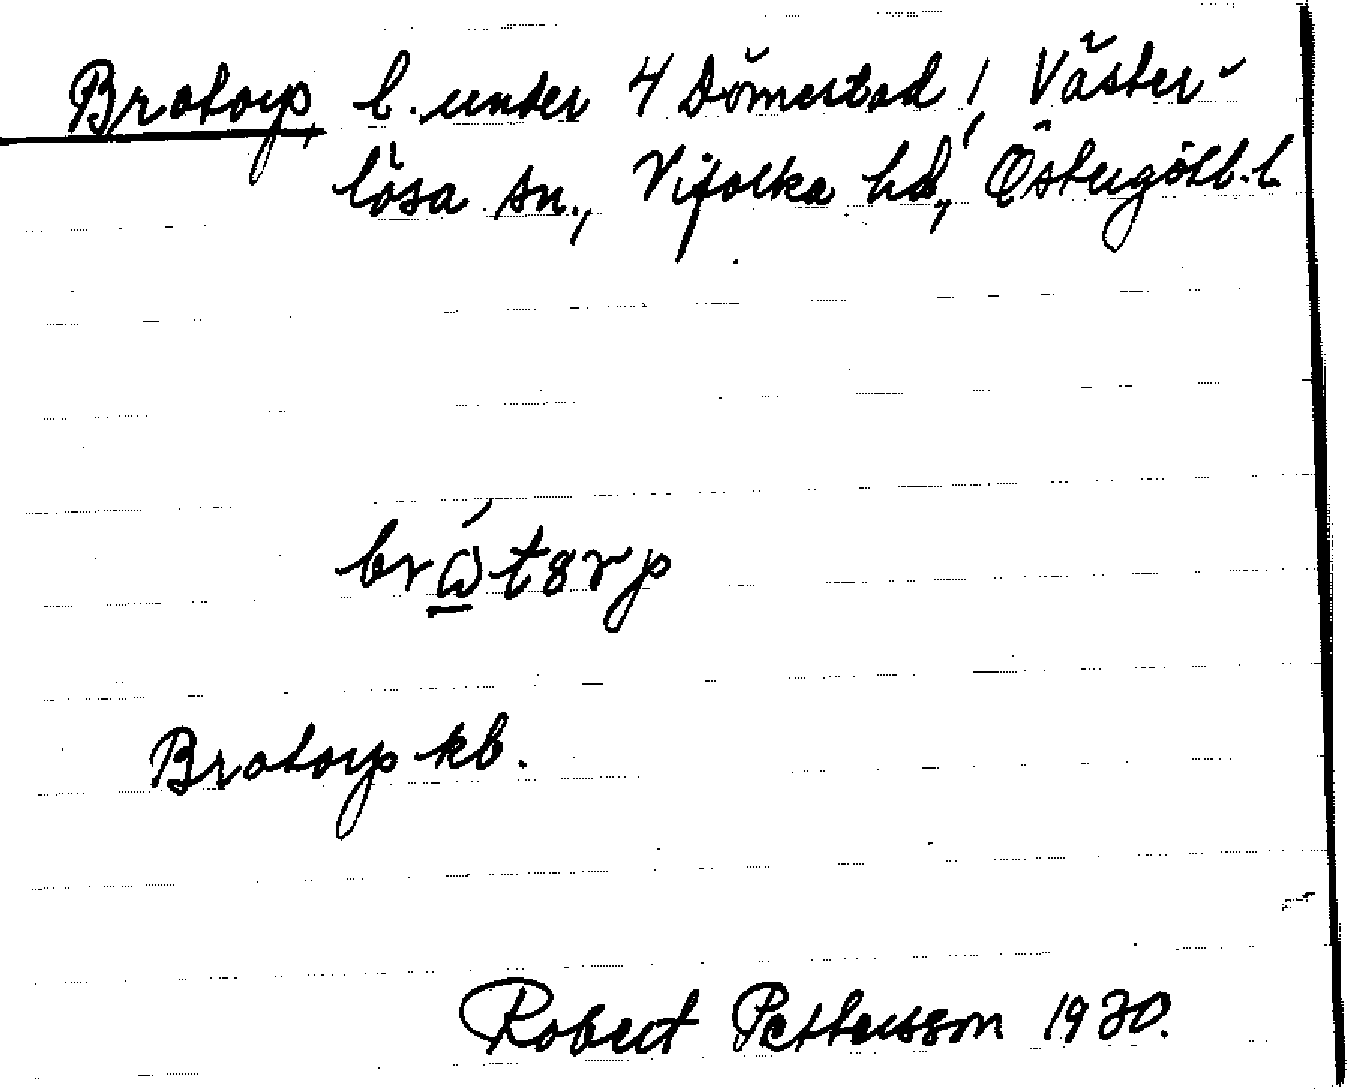 Brotorp, l. under 4 Dömestad, Väster-
lösa sn., Vifolka hd, Östergötl. l.
brǻtɜrp
Brotorp kb.
Robert Pettersson 1930.